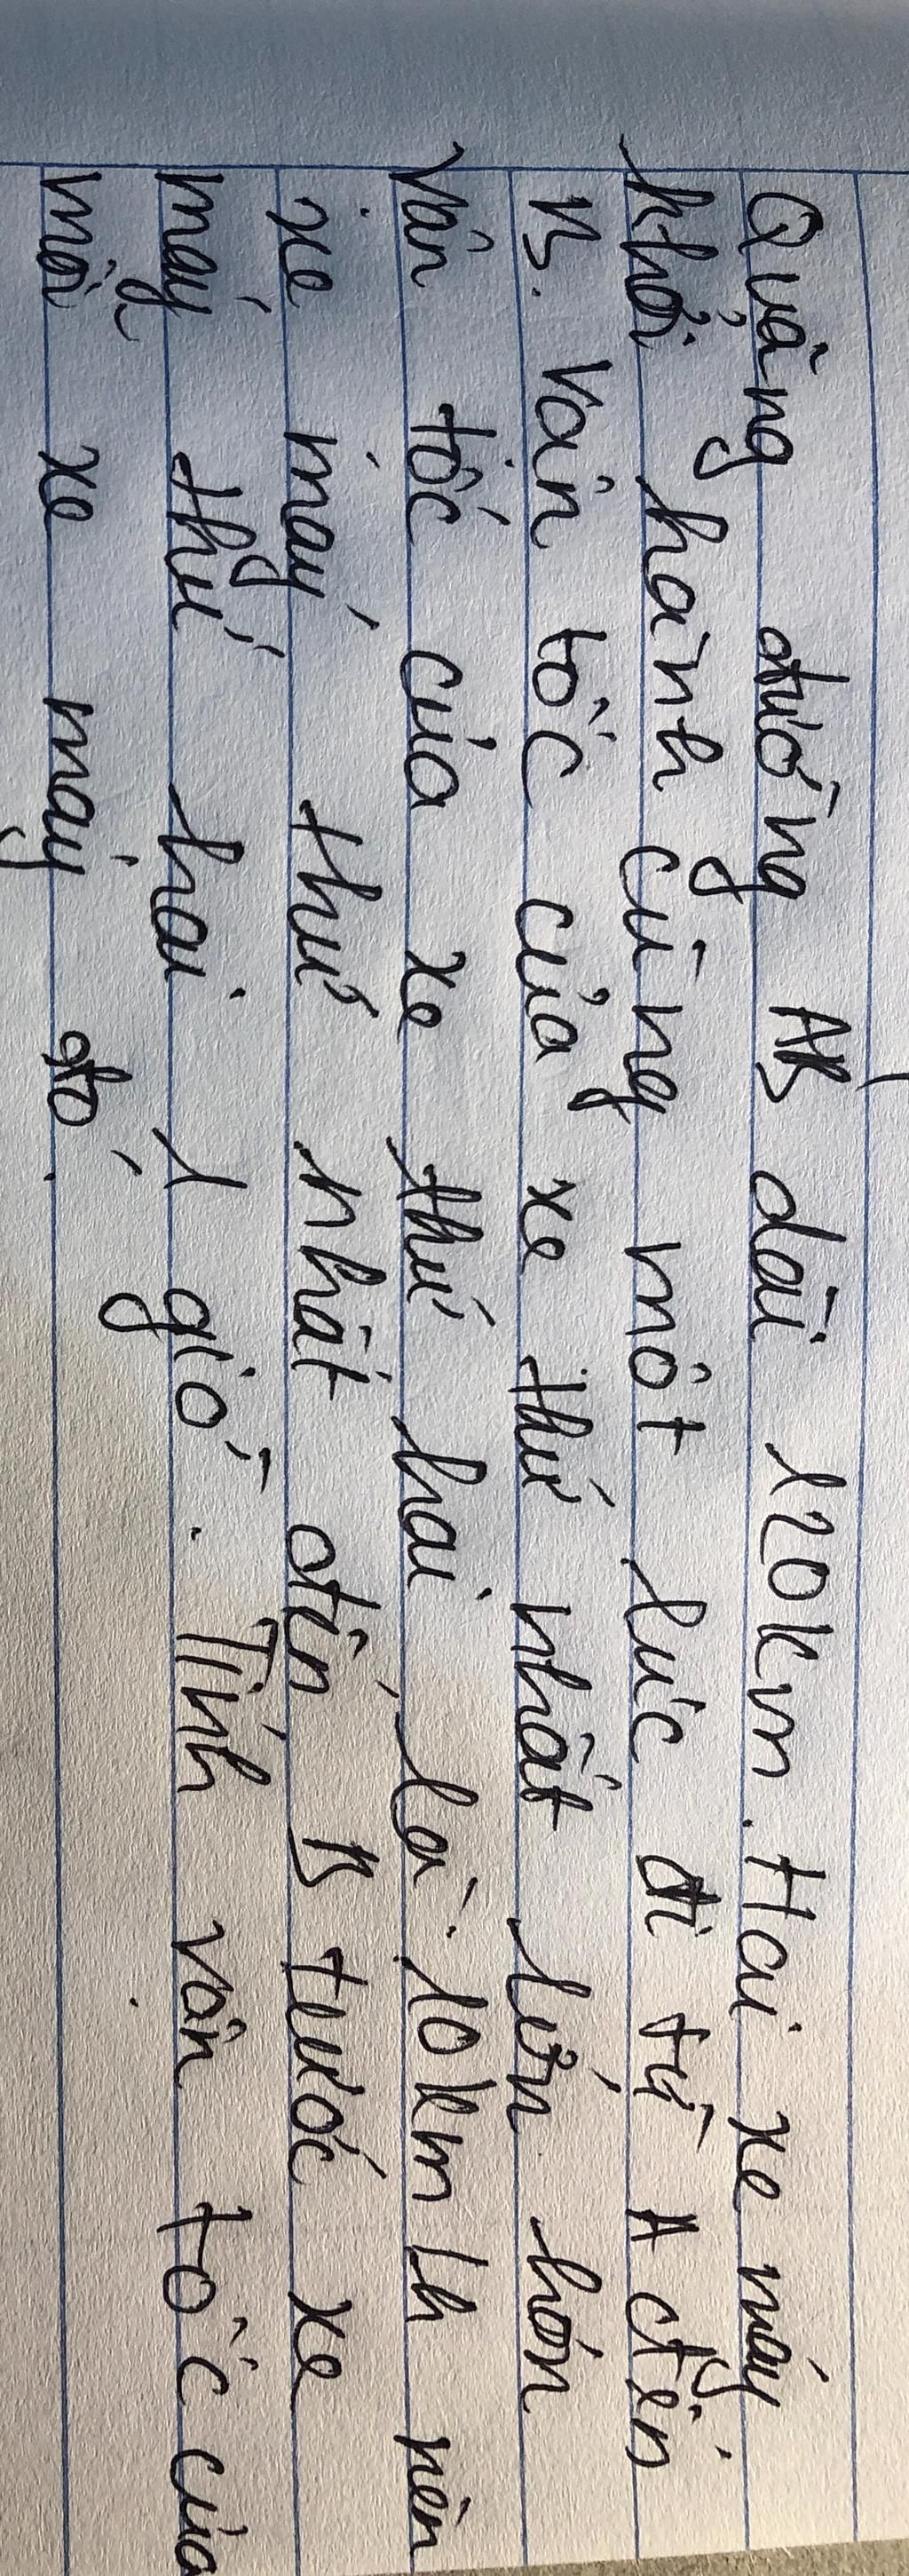 Quãng đường AB dài 120km. Hai xe máy
khởi hành cùng một lúc đi từ A đến
B. Vận tốc của xe thứ nhất lớn hơn
vận tốc của xe thứ hai là 10km/h nên
xe máy thứ nhất đến B trước xe
máy thứ hai 1 giờ. Tính vận tốc của
mỗi xe máy đó.